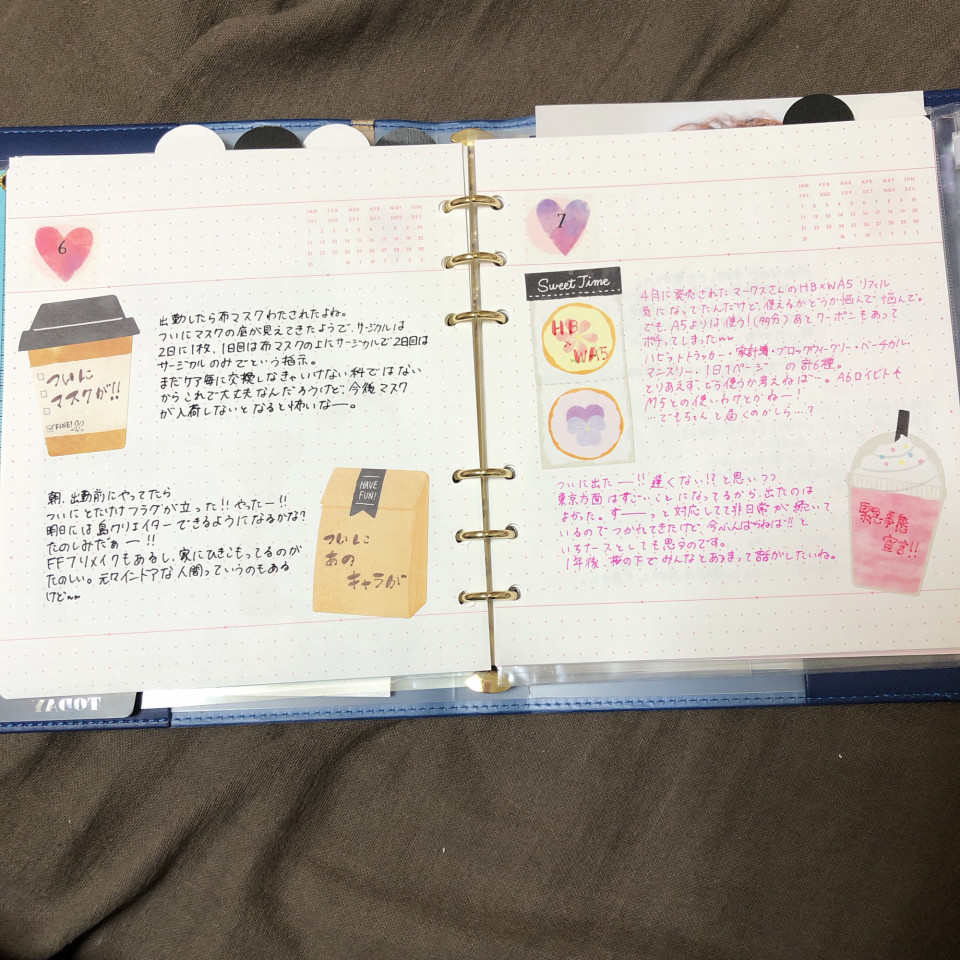 6
ついに
マスクが!!
FINE!
出勤したら布マスクわたされたよね。
ついにマスクの底が見えてきたようで、サージカルは
2日に1枚、1日目は布マスクの上にサージカルで2日目は
サージカルのみでという指示。
まだケア毎に交換しなきゃいけない科ではない
からこれで大丈夫なんだろうけど、今後マスク
が入荷しないとなると怖いなー。
朝、出勤前にやってたら
ついにとたけけフラグが立った!!やったー!!
明日には島クリエイターできるようになるかな?
たのしみだぁー!!
FFリメイクもあるし、家にひきこもってるのが
たのしい。元々インドアな人間っていうのもある
けどww
HAVE
FUN!
ついに
あの
キャラが
TODAY
7
JAN FEB MAR APR MAY JUN
JUL AUG SEP OCT NOV DEC
Sweet Time
HB
×
WA5
4月に発売されたマークスさんのHB×WA5リフィル
気になってたんだけど、使えるかどうか悩んで悩んで。
でも、A5よりは使う!(多分)あとクーポンもあって
ポチってしまったww
ハビットトラッカー・家計簿・ブロックウィークリー・バーチカル・
マンスリー・1日1ページ の計6種。
とりあえず、どう使うか考えねばー。A6ロイヒトも
M5との使いわけとかねー!
…でもちゃんと届くのかしら…?
ついに出たー!!遅くない!?と思いつつ
東京方面はすごいことになってるから、出たのは
よかった。すーーっと対応してて非日常が続いて
いるのでつかれてきたけど、今ふんばらねば!!と
いちナースとしても思うのです。
1年後、桜の下でみんなとあつまって話がしたいね。
緊急事態
宣言!!